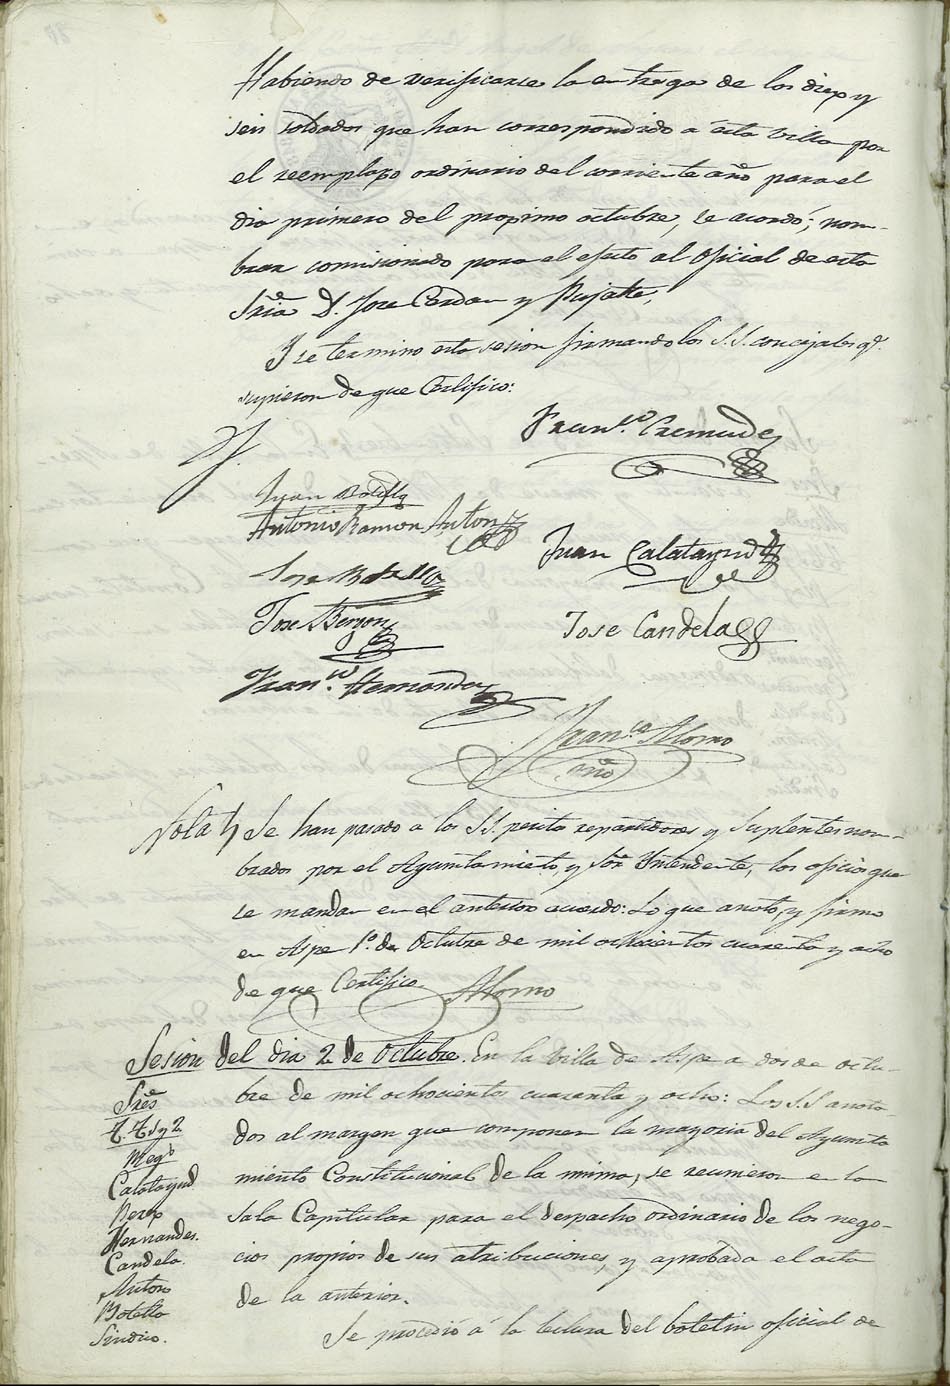 Habiendo de verificarse la entrega de los diez y
seis soldados que han correspondido á esta villa por
el reemplazo ordinario del corriente año para el
dia primero del proximo octubre, se acordó; nom-
brar comisionado para el efecto al Oficial de esta
Sria D. Jose Cerdan y Pujalte,
Y se termino esta sesion firmando los S.S. concejales qe.
supieron de que Certifico:
Franco. Cremades
Juan Botella
Antonio Ramon Anton
Juan Calatayud
Jose Botella
Jose Candela
Franco. Hernandez
Franco. Alorno
Srio
Nota Se han pasado a los SS. perito repartidores y suplentes nom-
brados por el Ayuntamiento, y Sor. Yntendente, los oficios que
se mandan en el anterior acuerdo: Lo que anoto, y firmo
en Aspe 1º de Octubre de mil ochocientos cuarenta y ocho
de que Certifico. Alorno
Sesion del dia 2 de Octubre. En la Villa de Aspe a dos de octu-
bre de mil ochocientos cuarenta y ocho: Los S.S anota
dos al margen que componen la mayoria del Ayunta
miento Constitucional de la misma, se reunieron en la
Sala Capitular para el despacho ordinario de los nego-
cios propios de sus atribuciones, y aprobada el acta
de la anterior.
Se procedió á la lectura del boletin oficial de
Sres
T. 1 y 2
Regs
Calatayud
Perez
Hernandez.
Candela.
Anton
Botella
Sindico.